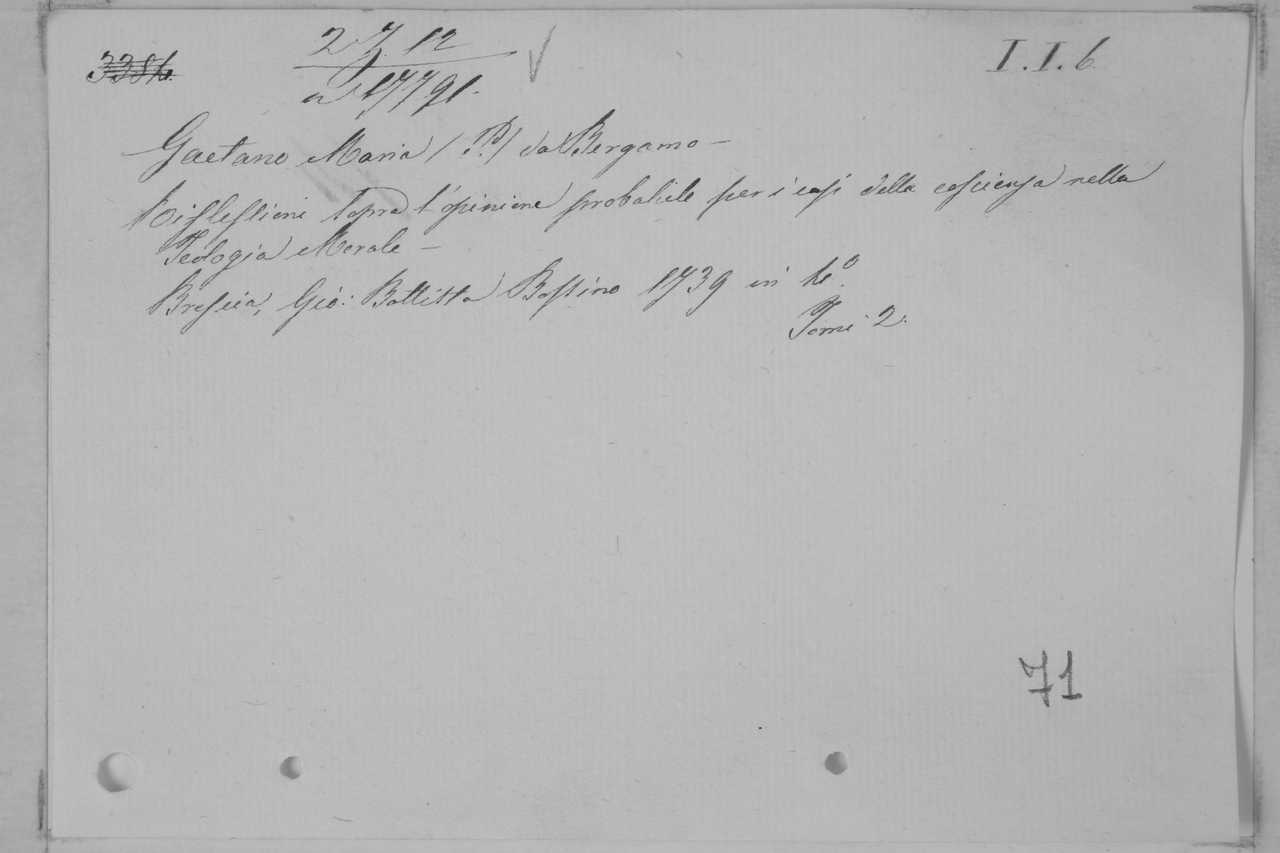 3384.
2. Z. 12
I. I. 6.
a 17791.
Gaetano Maria (P.) da Bergamo –
Riflessioni sopra l'opinione probabile per i casi della coscienza nella
Teologia Morale –
Brescia, Gio: Battista Bossino 1739 in 4.º
Tomi 2.
71